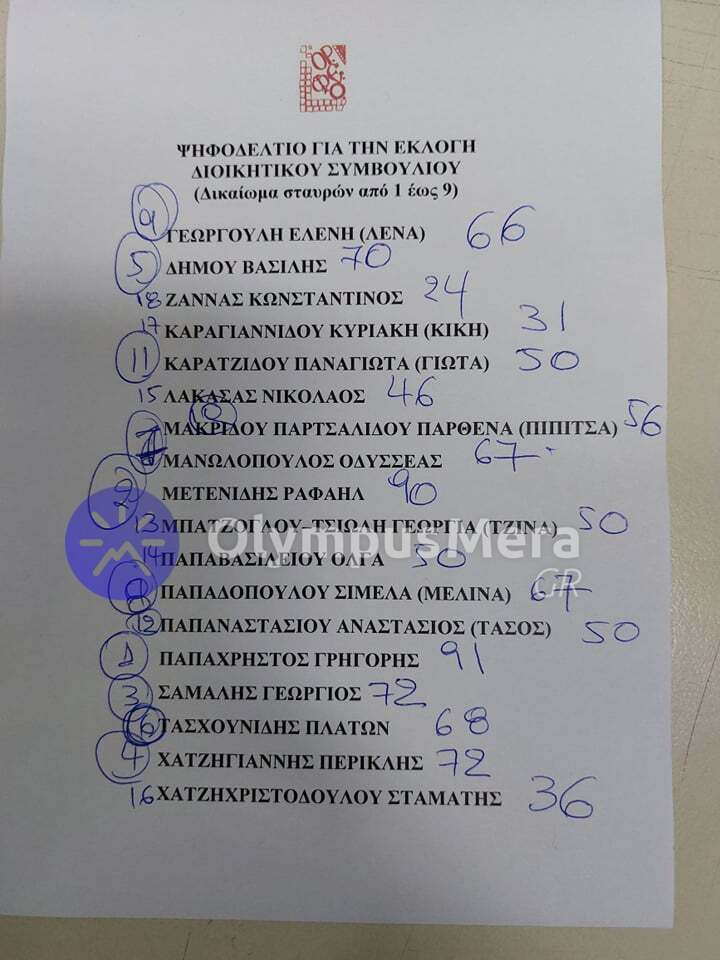 ΨΗΦΟΔΕΛΤΙΟ ΓΙΑ ΤΗΝ ΕΚΛΟΓΗ
ΔΙΟΙΚΗΤΙΚΟΥ ΣΥΜΒΟΥΛΙΟΥ
(Δικαίωμα σταυρών από 1 έως 9)
9 ΓΕΩΡΓΟΥΛΗ ΕΛΕΝΗ (ΛΕΝΑ) 66
5 ΔΗΜΟΥ ΒΑΣΙΛΗΣ 70
18 ΖΑΝΝΑΣ ΚΩΝΣΤΑΝΤΙΝΟΣ 24
17 ΚΑΡΑΓΙΑΝΝΙΔΟΥ ΚΥΡΙΑΚΗ (ΚΙΚΗ) 31
11 ΚΑΡΑΤΖΙΔΟΥ ΠΑΝΑΓΙΩΤΑ (ΓΙΩΤΑ) 50
15 ΛΑΚΑΣΑΣ ΝΙΚΟΛΑΟΣ 46
ΜΑΚΡΙΔΟΥ ΠΑΡΤΣΑΛΙΔΟΥ ΠΑΡΘΕΝΑ (ΠΙΠΙΤΣΑ) 56
ΜΑΝΩΛΟΠΟΥΛΟΣ ΟΔΥΣΣΕΑΣ 67
2 ΜΕΤΕΝΙΔΗΣ ΡΑΦΑΗΛ 90
13 ΜΠΑΤΖΟΓΛΟΥ–ΤΣΙΩΛΗ ΓΕΩΡΓΙΑ (ΤΖΙΝΑ) 50
OlympusMera
GR
14 ΠΑΠΑΒΑΣΙΛΕΙΟΥ ΟΛΓΑ 50
8 ΠΑΠΑΔΟΠΟΥΛΟΥ ΣΙΜΕΛΑ (ΜΕΛΙΝΑ) 67
12 ΠΑΠΑΝΑΣΤΑΣΙΟΥ ΑΝΑΣΤΑΣΙΟΣ (ΤΑΣΟΣ) 50
1 ΠΑΠΑΧΡΗΣΤΟΣ ΓΡΗΓΟΡΗΣ 91
3 ΣΑΜΑΛΗΣ ΓΕΩΡΓΙΟΣ 72
6 ΤΑΣΧΟΥΝΙΔΗΣ ΠΛΑΤΩΝ 68
4 ΧΑΤΖΗΓΙΑΝΝΗΣ ΠΕΡΙΚΛΗΣ 72
16 ΧΑΤΖΗΧΡΙΣΤΟΔΟΥΛΟΥ ΣΤΑΜΑΤΗΣ 36